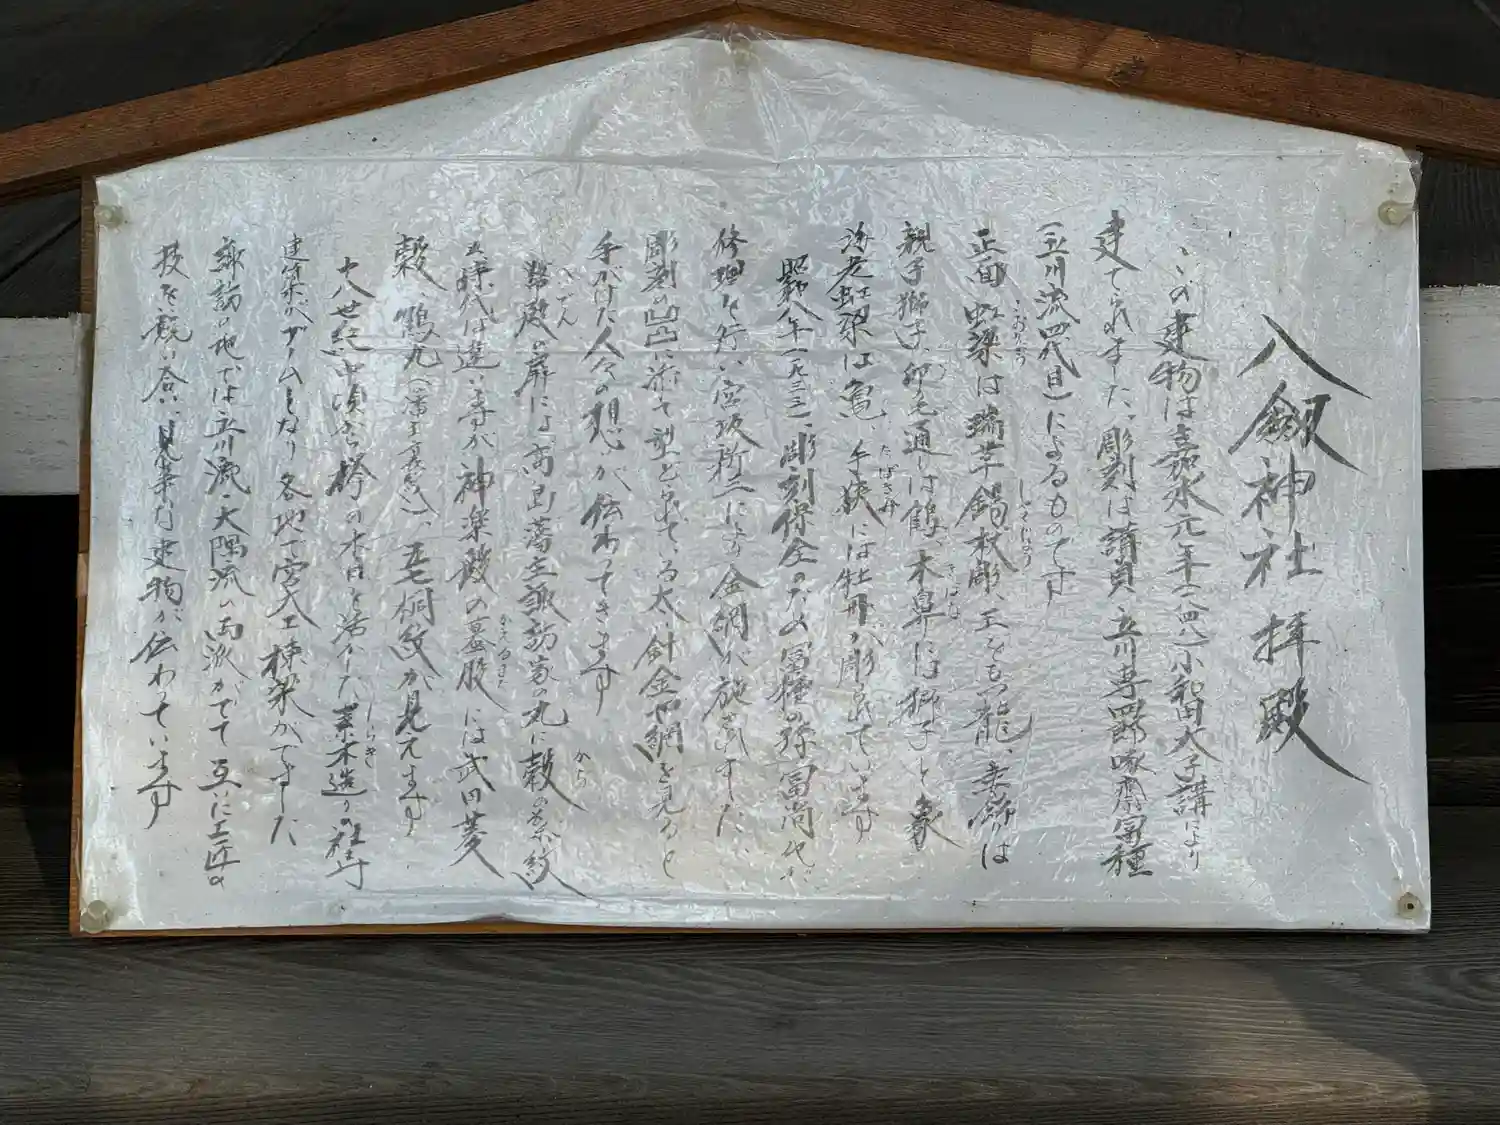 八剱神社 拝殿
この建物は嘉永元年(一八四八)小和田大子講により
建てられました。彫刻は請負 立川専四郎啄斎富種
(立川流四代目)によるものです
正面 虹梁は瑞草錫杖彫、玉をもつ龍、妻飾は
親子獅子 卯の毛通しは鶴、木鼻には獅子と象
海老虹梁は亀、手挟には牡丹が彫られています
昭和八年(一九三三)、彫刻保全のため富種の孫 富尚代が
修理を行い宮坂 により金網が施されました、
彫刻の凸凹に添って型どられている太い針金や網を見ると
手がけた人々の想いが伝わってきます
幣殿の扉には高島藩主諏訪家の丸に穀の葉紋
時代は違いますが神楽殿の蟇股には武田菱
穀、鶴丸、五七桐紋が見えます
十八世紀中頃から欅の木目を活かした素木造りの社寺
建築がブームとなり各地で宮大工棟梁がでました
諏訪の地では立川流・大隅流の両派がでて互いに工匠の
技を競い合い見ごたえある建物が伝わっています